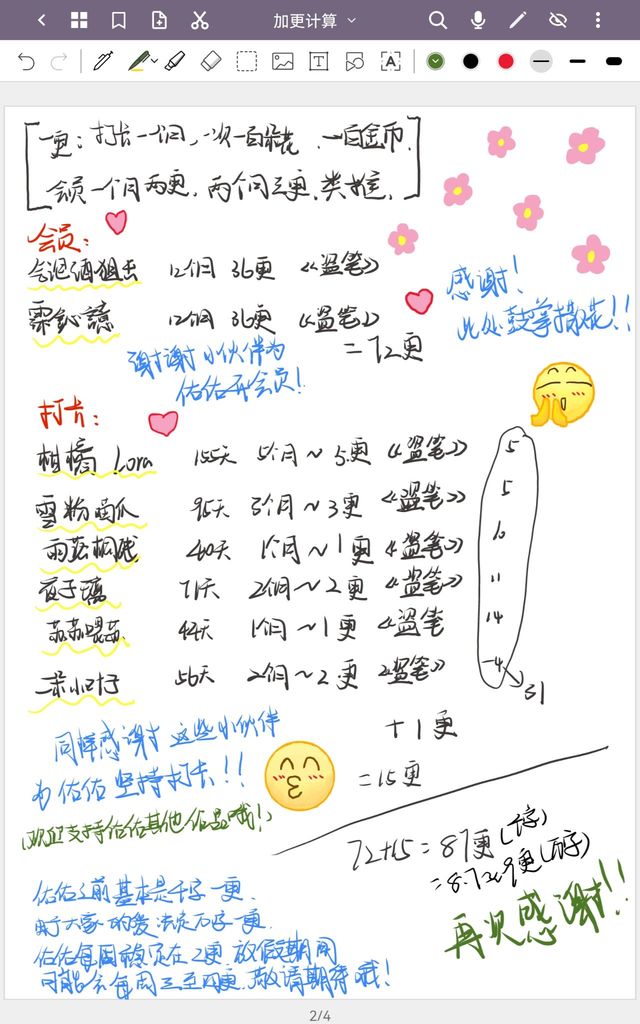 加更计算
一更：打卡一个月，一次一百朵花，一百金币.
会员一个月两更，两个月三更，类推.
会员：
12个月 36更 《盗笔》
霖 12个月 36更 《盗笔》
=72更
感谢！
此处鼓掌撒花！！
谢谢小伙伴为
佑佑开会员！
打卡：
柑橘 Lora 155天 5个月~5更 《盗笔》 5
雪粉 95天 3个月~3更 《盗笔》 5
雨落桐 40天 1个月~1更 《盗笔》 10
夜子璃 71天 2个月~2更 《盗笔》 11
苏苏 44天 1个月~1更 《盗笔 14
56天 2个月~2更 《盗笔》 -4
31
同样感谢这些小伙伴
为佑佑坚持打卡！！
+1更
=15更
(欢迎支持佑佑其他作品哦！)
72+15=87更(千字)
再次感谢！！
佑佑之前基本是千字一更，
由于大家的 万字一更，
佑佑每周稳定在2更，放假期间
可能会每周三至四更，敬请期待哦！
2/4